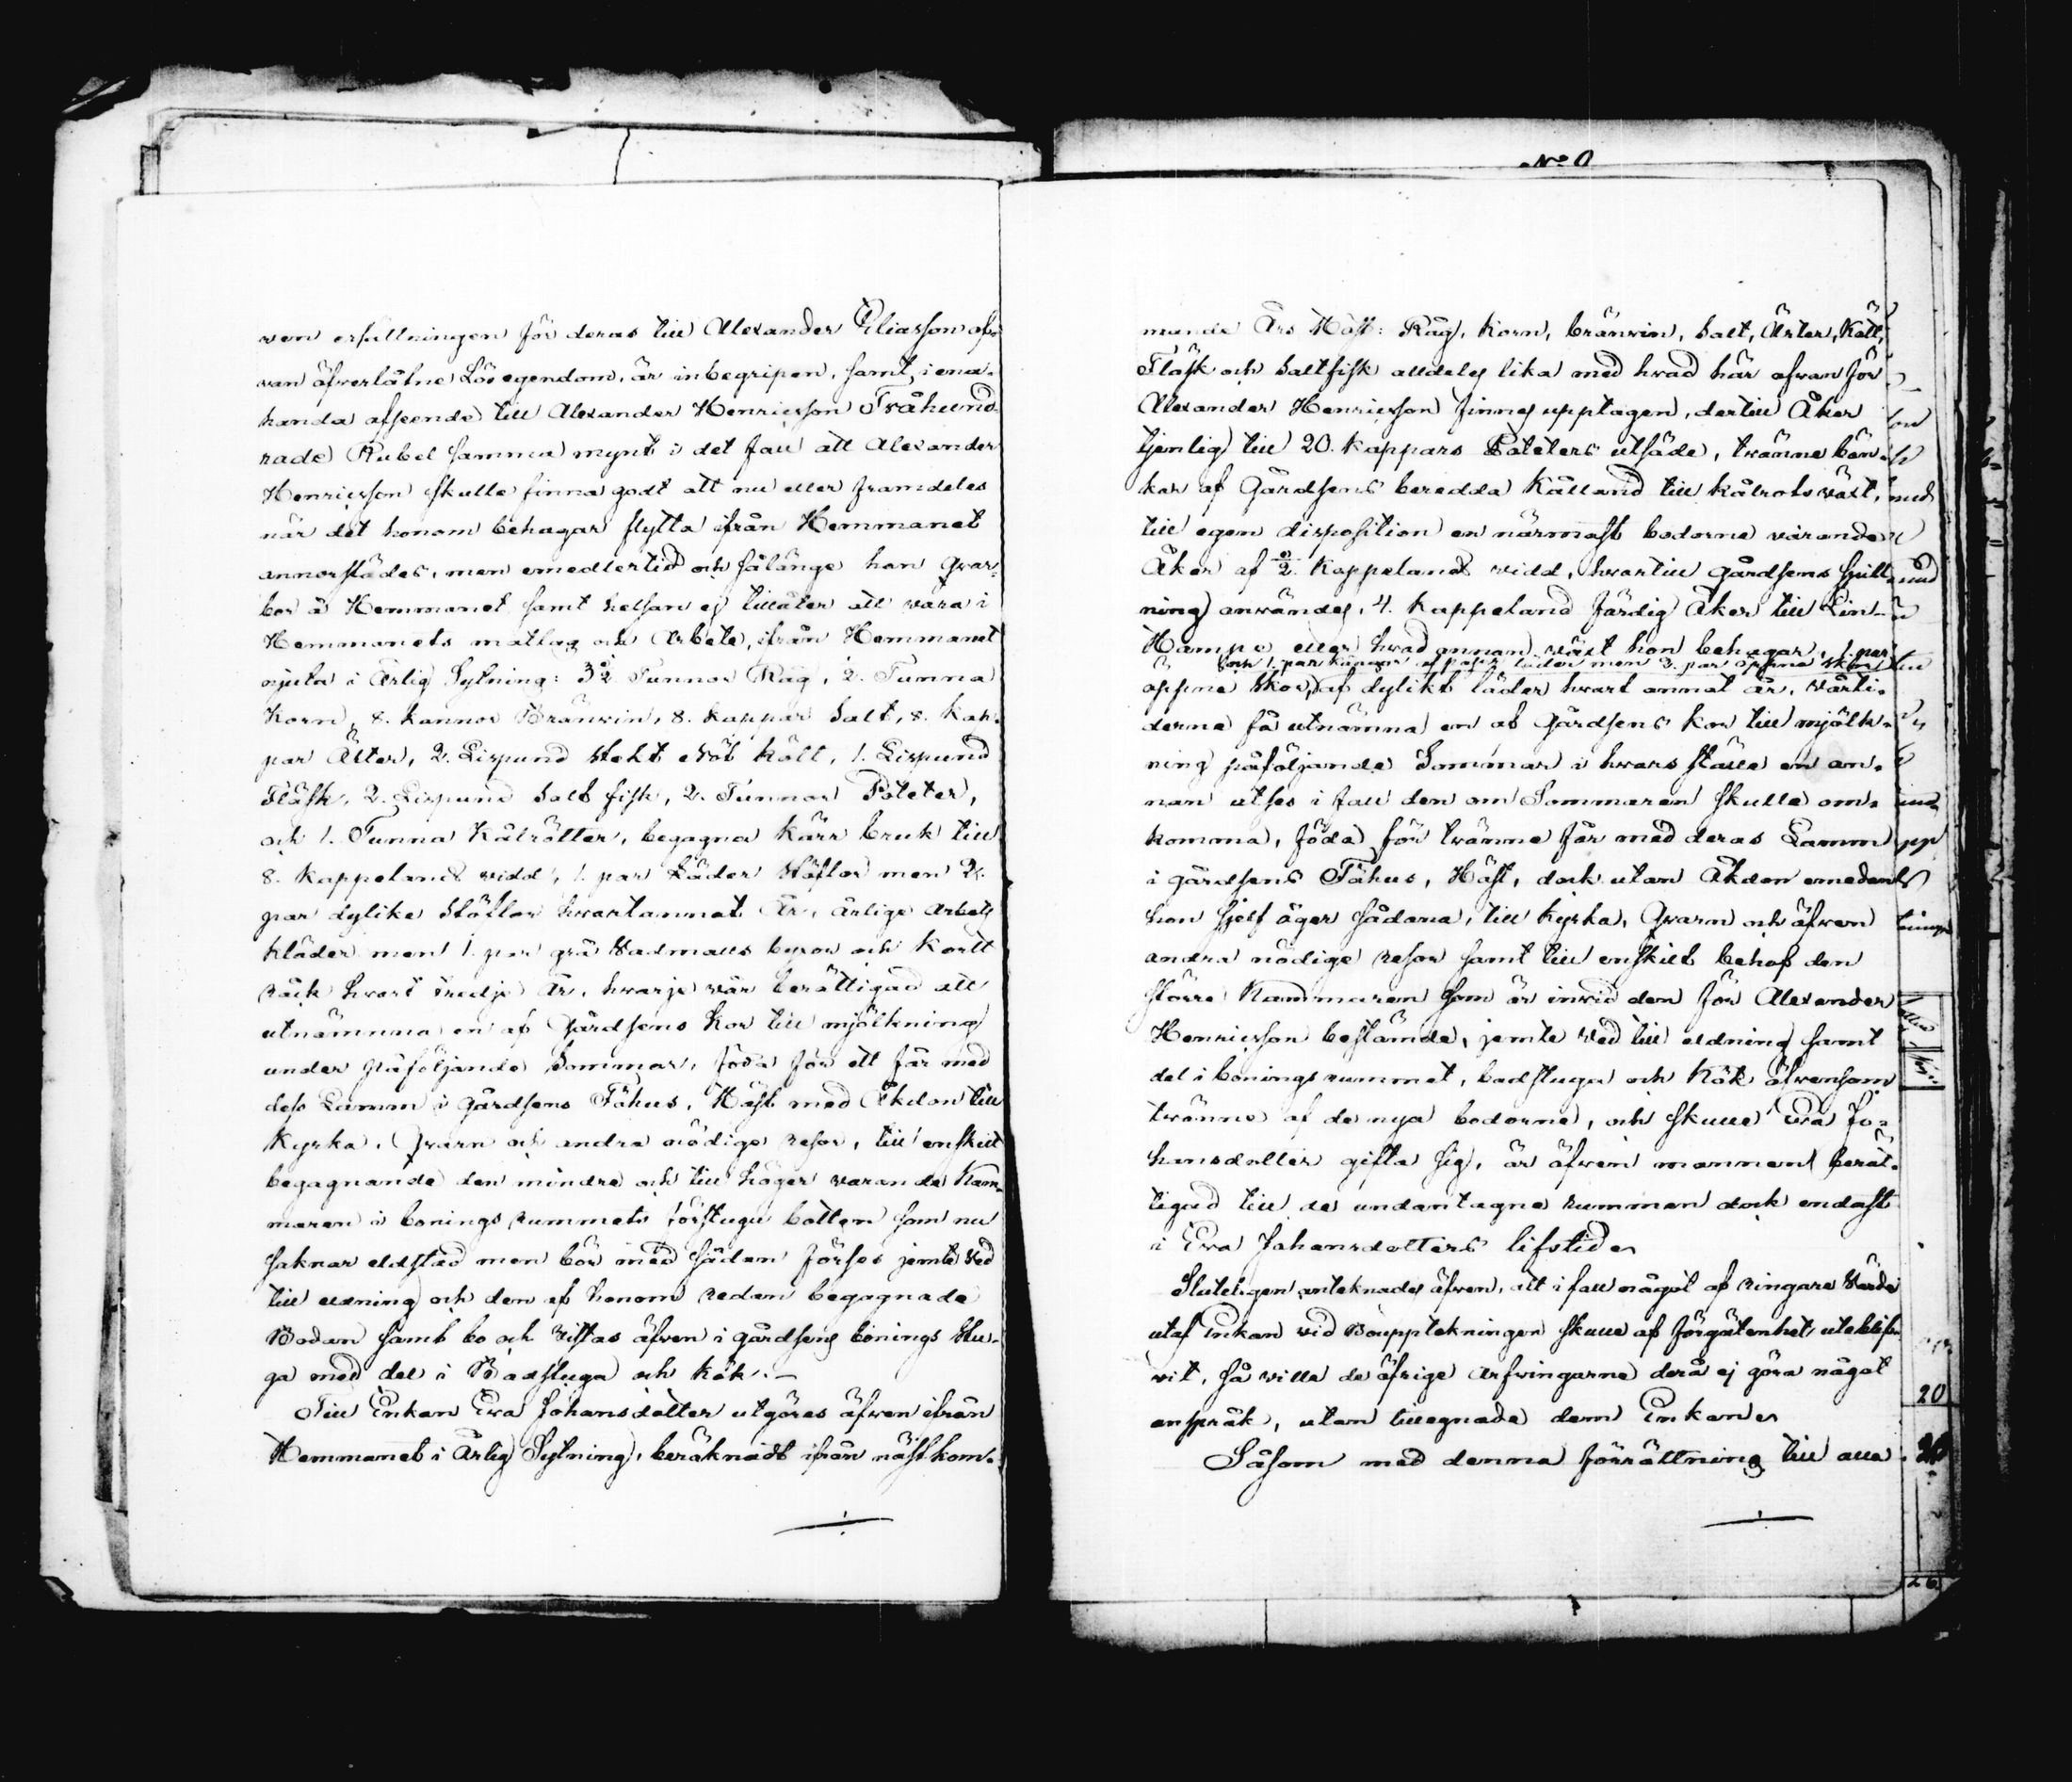 ven ersättningen för deras till Alexander Eliasson of-
van äfverlåtne Lösegendom, är inbegripen, samt i ena-
handa afseende till Alexander Henricsson Tvåhund-
rade Rubel samma mynt i det fall att Alexander
Henricsson skulle finna godt att nu eller framdeles
när det honom behagar flytta ifrån Hemmanet
annorstädes, men emedlertid och sålänge han qvar-
bor å Hemmanet samt helsan ej tillåter att vara i
Hemmanets matlag och Arbete, ifrån Hemmanet
njuta i Årlig Sytning: 3½ Tunnor Råg, ½ Tunna
Korn, 8. kannor Bränvin, 8. kappar Salt, 8. kap-
par Ärter, 2. Lispund Nöt kött, 1. Lispund
Fläsk, 2. Lispund Salt fisk, 2. Tunnor Poteter,
och 1. Tunna Kålrötter, begagna kärr bruk till
8. kappelands vidd, 1. par Läder Stöflor men 2.
par dylike Stöflor hvartannat År, årlige Arbets
kläder men 1. par grå Vadmals byxor och kortt
råck hvart tredje År, hvarje vår berättigad att
utnämna en af Gårdsens kor till mjölkning
under påföljande Sommar, föda för ett får med
dess Lamm i gårdsens Fähus, Häst med Åkdon till
Kyrka, Qvarn och andra nödige resor, till enskilt
begagnande den mindre och till höger varande Kam-
maren i bonings rummets förstugu botten som nu
saknar eldstad men bör med sådan förses jemte Ved
till eldning och den af honom redan begagnade
Bodan samt bo och vistas äfven i gårdsens bonings stu-
ga med del i Badstuga och kök.-
Till Enkan Eva Johansdotter utgöres äfven ifrån
Hemmanet i Årlig Sytning, beräknadt ifrån nästkom-
No 0
mande Års Höst: Råg, Korn, bränvin, Salt, Ärter, Kött,
Fläsk och Saltfisk alldeles lika med hvad här ofvan för
Alexander Henricsson finnes upptagen, dertill Åker
tjenlig till 20. kappars Poteters utsäde, tvänne bän-
kar af Gårdsens beredda Kålland till kålrots växt,
till egen disposition en närmast bodorne varande
Åker af ½ Kappelands vidd, hvartill gårdsens spill-
ning användes, 4. kappeland färdig Åker till Lin-
Hampe eller hvad annan växt hon behagar, 1. par
och 1. par kängor af läder men 2. par öppna skor
öppna skor, af dylikt läder hvart annat år, vårti-
derna få utnämna en af Gårdsens kor till mjölk-
ning påföljande Sommar i hvars ställe en an-
nan utses i fall den om Sommaren skulle om-
komma, föda för tvänne får med deras Lamm
i gårdsens Fähus, Häst, dock utan Åkdon emedan
hon sjelf äger sådana, till kyrka, Qvarn och äfven
andra nödige resor samt till enskilt behof den
större Kammaren som är invid den för Alexander
Henricsson bestämde, jemte Ved till eldning samt
del i bonings rummet, badstuga och Kök äfvensom
tvänne af de nya bodorne, och skulle Eva Jo-
hansdotter gifta sig, är äfven mannen berät-
tigad till de undantagne rummen dock endast
i Eva Johansdotters lifstid.
Slutligen anteknades äfven, att i fall något af ringare Värde
utaf Enkan vid Bouppteckningen skulle af förgätenhet uteblif-
vit, så ville de öfrige arfvingarne derå ej göra något
anspråk, utan tillegnade dem Enkan.
Såsom med denna förrättning till alla
20